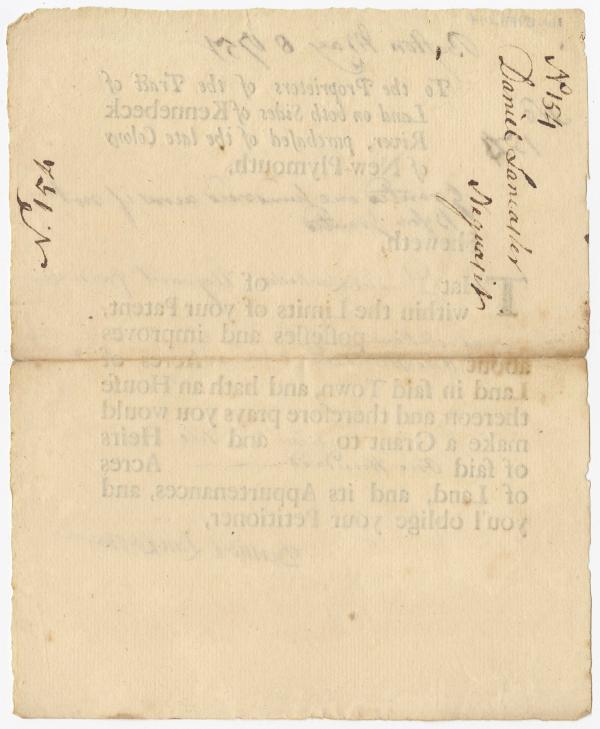 No 154
Daniel Lancaster
Neguasit
No 154
Boston May 8 1751
To the Proprietors of the Tract of
Land on both Sides of Kennebeck
River, purchased of the late Colony
of New-Plymouth,
Sheweth,
That of
within the Limits of your Patent,
possesses and improves
about Acres of
Land in said Town, and hath an House
thereon and therefore prays you would
make a Grant to and Heirs
of said One Hundred Acres
of Land, and its Appurtenances, and
you'l oblige your Petitioner,